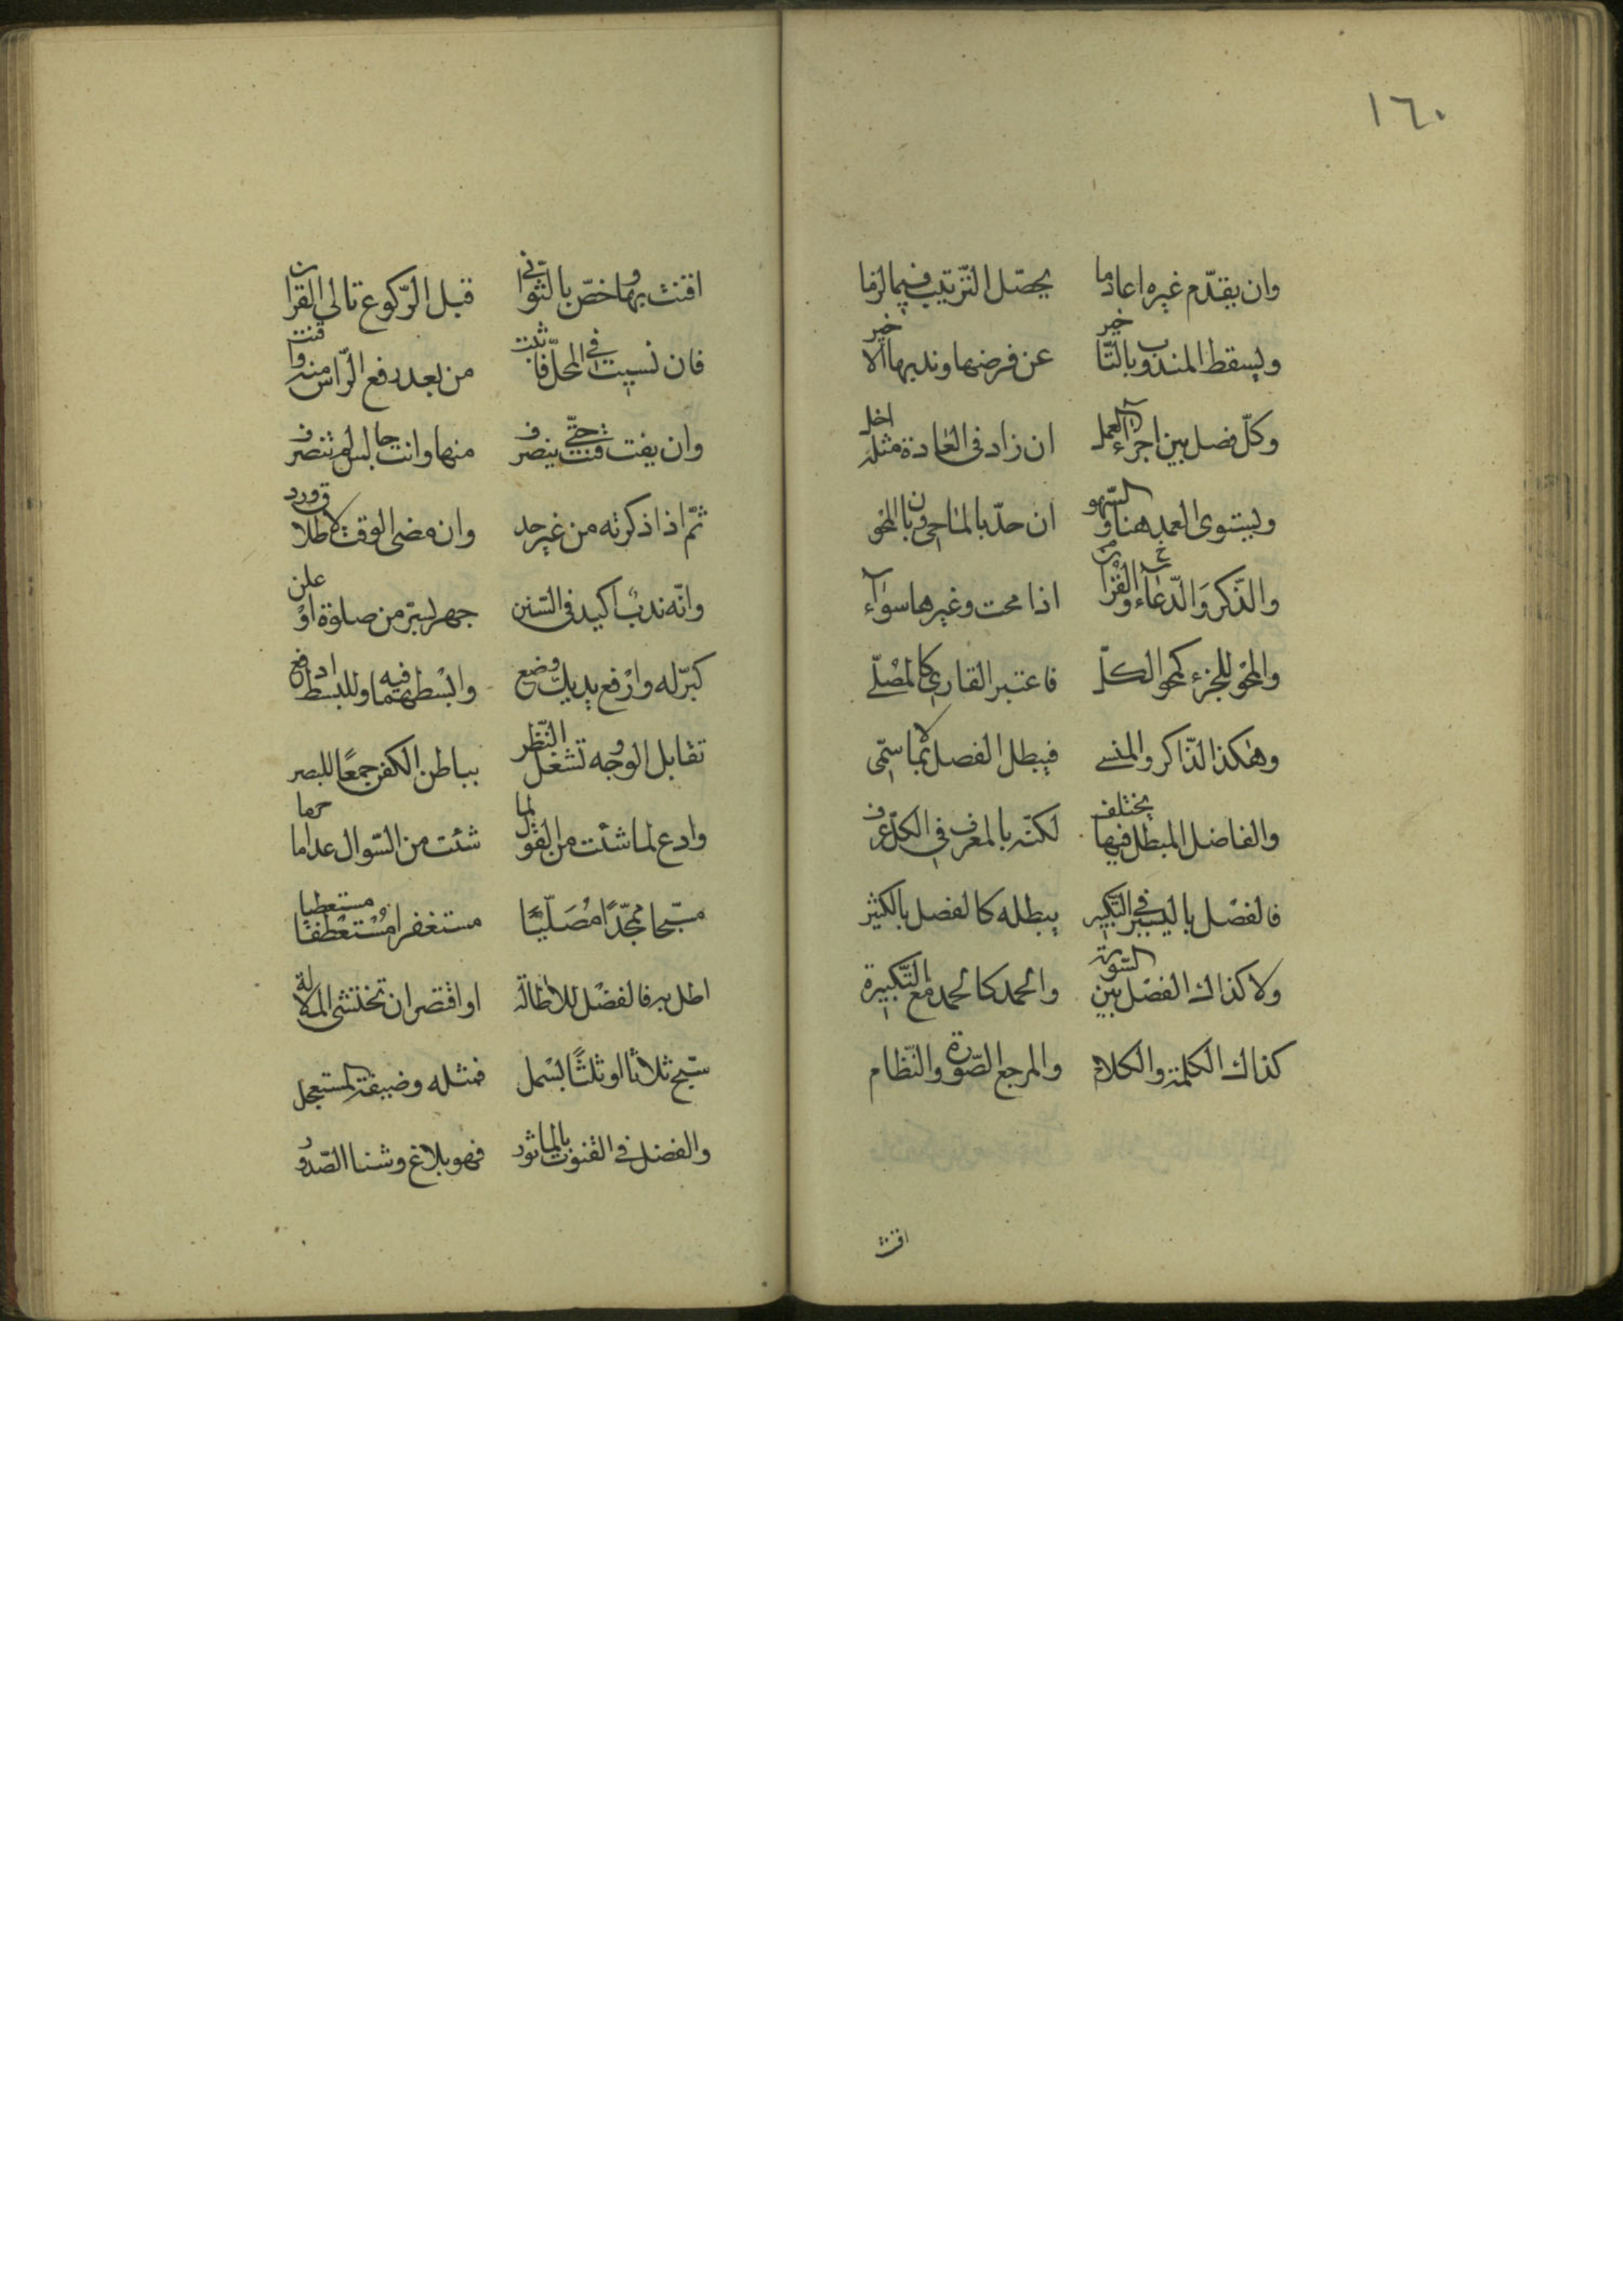 ١٦٠
وان يقدّم غيره اعاد ما يحصّل الترتيب فيما لزما
ويسقط المندوب بالتاخير عن فرضها وندبها الاخير
وكلّ فصل بين اجزاء العمل ان زاد فى العادة مثله اخل
ويستوى العمد هنا والسّهو ان حدّ بالماحى وان بالمحو
والذّكر والدّعاء والقران اذا محت وغيرها سواء
والمحو للجزء كمحو الكلّ فاعتبر القارى كالمصلّے
وهكذا الذّاكر والمنسے فيبطل الفصل لما سمّى
والفاصل المبطل فيها يختلف لكنّه بالعرف فى الكلّ عرف
فالفصل باليسير فى التكبير يبطله كالفصل بالكثير
ولا كذاك الفصل بين السّورة والحمد كالحمد مع التّكبيرة
كذاك الكلمة والكلام والمرجع الصّورة والنّظام
اقنت
اقنت بها وخصّ بالثّوانى قبل الرّكوع تالى القران
فان نسيت فى المحلّ فاثبت من بعد رفع الرّاس منه واقنت
وان يفت قنت حتّى ينصرف منها وانت جالس لم تنصرف
ثمّ اذا ذكرته من غير حد وان مضى الوقت لاطلاق ورد
وانّه ندب اكيد فى السّنن جهر لسرّ من صلوة او علن
كبّر له وارفع يديك وضع وابسطهما فيه وللبسط ادفع
تقابل الوجه وتشغل النّظر بباطن الكفّ جمعًا للبصر
وادع لما شئت من القول لما شئت من السّوال عدا ما حرما
مسبّحا ممجّدًا مصلّيًا مستغفرا مستعطفا مستعطيا
اطل به فالفضل للاطالة او اقتصر ان تختشى الملالة
سبّح ثلاثا او ثلثًا بسمل فمثله وضيفة المستعجل
والفضل فى القنوت بالماثور فهو بلاغ وشفا الصّدور